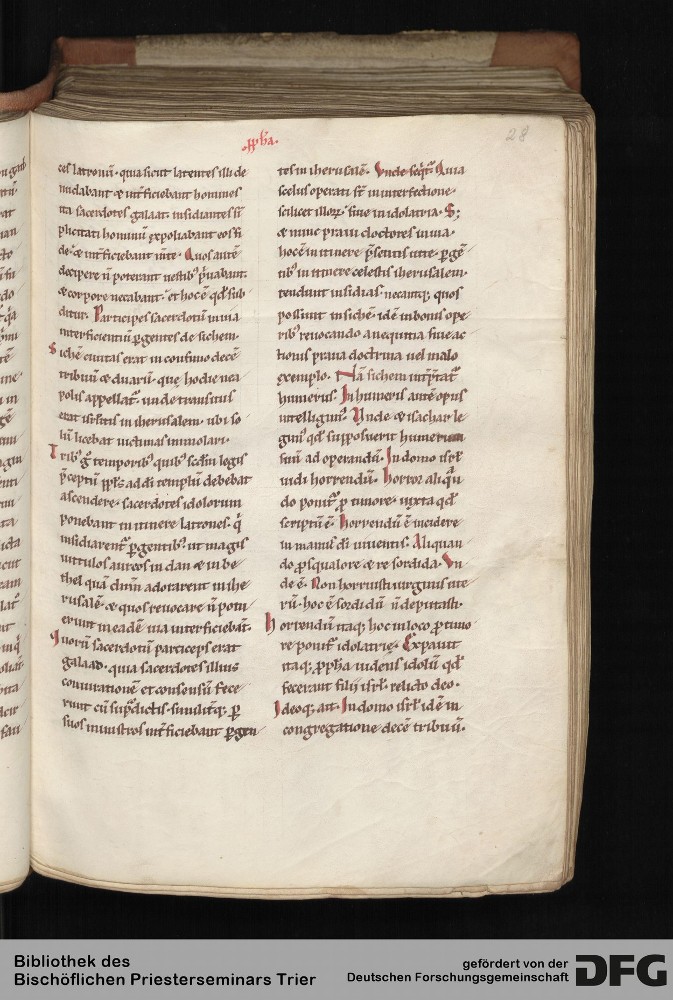 .ꝓpħa.
28
ces latronū. quia sicut latentes illi de
nudabant & int̄ficiebant homines
ita sacerdotes galaat. insidiantes si
plicitati hominū expoliabant eos fi
de. & int̄ficiebant
decipere n̄ poterant uestibꝰ p̄uabant.
& corpore necabant. et hoc ē qd̄ sub
ditur. Participes sacerdotū in uia
interficientiū ꝑgentes de sichem.
Sichē ciuitas erat in confinio decē
tribuū & duarū. que hodie nea
polis appellat᷑. unde transitus
erat isrl̄itis in iherusalem. ubi so
lū licebat uictimas immolari.
Tribꝰ g̊ temporibꝰ quibꝰ scdm̄ legis
p̄ceptū ppl̄s ad dī templū debebat
ascendere. sacerdotes idolorum
ponebant in itinere latrones. q̄
insidiarent᷑ ꝑgentibꝰ. ut magis
uitulos aureos in dan & in be
thel quā dn̄m adorarent in ihe
rusalē. & quos reuocare n̄ potu
erunt in eadē uia interficiebāt.
Quorū sacerdotū particeps erat
galaad. quia sacerdotes illius
coniurationē et consensū fece
runt cū sup̄dictis. similit᷑q; ꝑ
suos ministros int̄ficiebant ꝑgen
tes in iherusalē. Vnde seqt᷑. Quia
scelus operati st̄ in interfectione
scilicet illoꝝ. siue in idolatria. S;
& nunc praui doctores in uia.
hoc ē in itinere p̄sentis uite. ꝑgē
tibꝰ in itinere celestis iherusalem.
tendunt insidias. necantq; quos
possunt in sichē. id ē in bonis ope
ribꝰ reuocando a nequitia siue ac
tionis praua doctrina uel malo
exemplo. Nā sichem int̄p̄tat᷑
humerus. In humeris autē opus
intelligim᷑. Vnde & isachar le
gim᷑ qd̄ supposuerit humerum
suū ad operandū. In domo isrl̄
uidi horrendū. Horror aliqn̄
do ponit᷑ ꝓ timore. iuxta qd̄
scriptū ē. Horrendū ē incidere
in manus dī uiuentis. Aliquan
do ꝓ squalore & re sordida. Vn
de ē. Non horruisti uirginis ute
rū. hoc ē sordidū n̄ deputasti.
Horrendū itaq; hoc in loco ꝓ timo
re ponit᷑ idolatrie. Expauit
itaq; ꝓpħa uidens idolū qd̄
fecerant filii isrl̄. relicto deo.
Ideoq; ait. In domo isrl̄ id ē in
congregatione decē tribuū.
Bibliothek des
Bischöflichen Priesterseminars Trier
gefördert von der
Deutschen Forschungsgemeinschaft
DFG